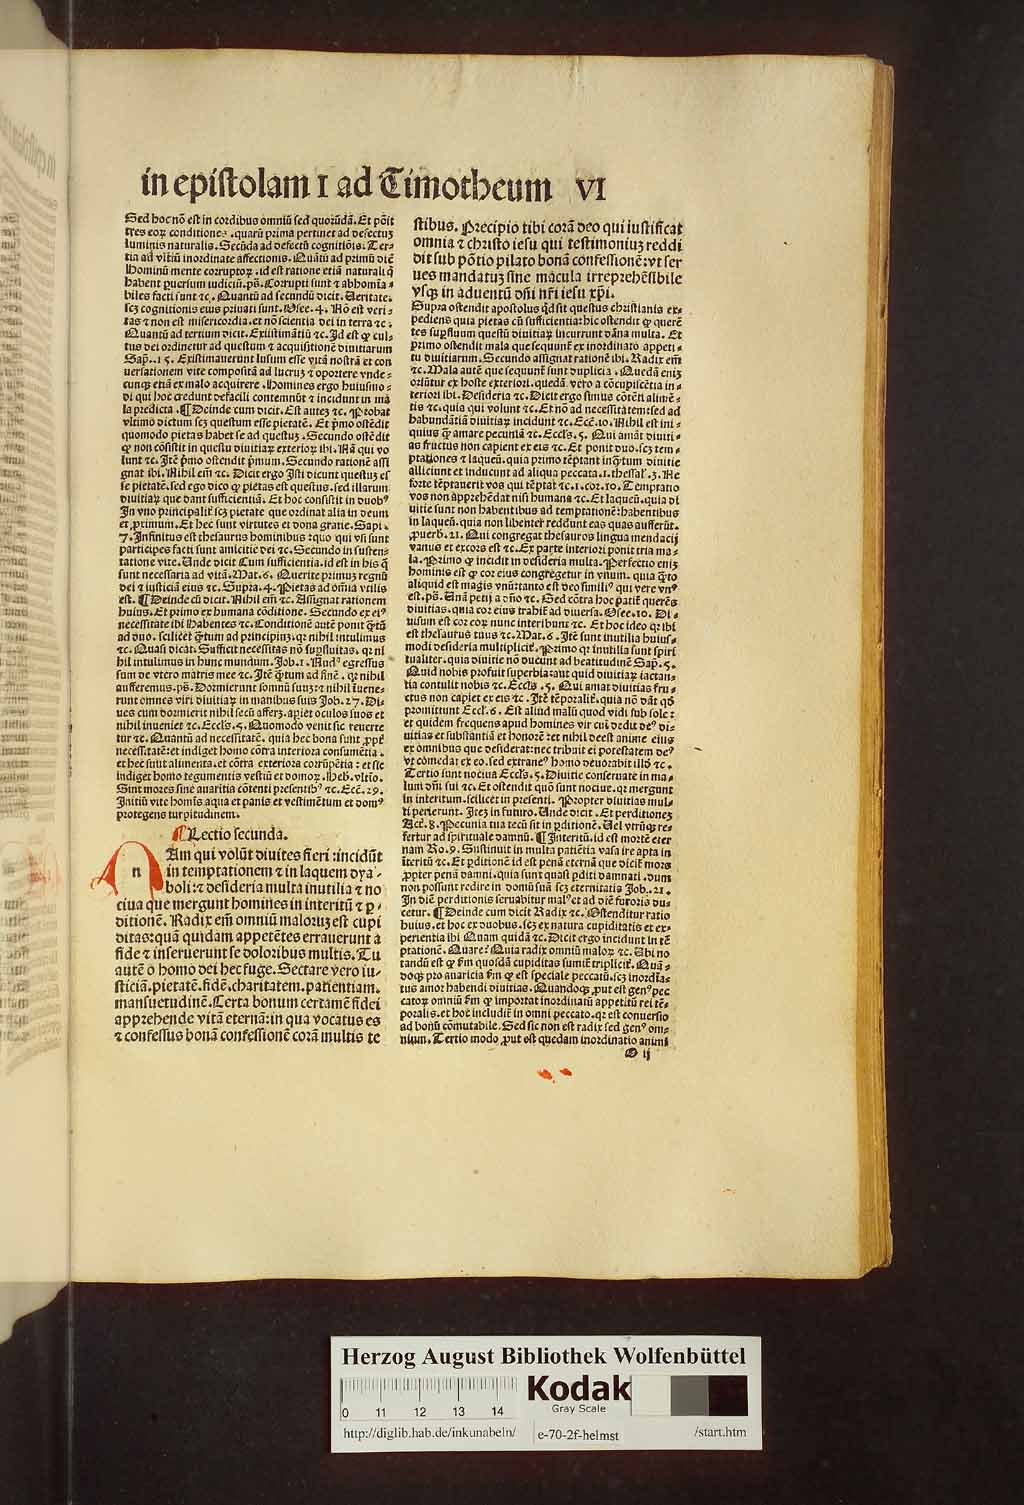 in epistolam I ad Timotheum VI
Sed hoc nõ est in cordibus omniũ sed quorũdã. Et põit
tres eoꝝ conditiones. quarũ prima pertinet ad defectus
luminis naturalis. Secũda ad defectũ cognitiõis. Ter⸗
tia ad vltiũ inordinate affectionis. Quãtũ ad primũ diẽ
Hominũ mente corruptoꝝ. id est ratione etiã naturali q̃
habent ꝑuersum iudiciũ. ps̃. Corrupti sunt ⁊ abhomĩa⸗
biles facti sunt ⁊c. Quantũ ad secundũ dicit. Veritate.
scꝫ cognitionis eius priuati sunt. Osee. 4. Nõ est veri⸗
tas ⁊ non est misericordia. et nõ scientia dei in terra ⁊c.
Quantũ ad tertium dicit. Existimãtiũ ⁊c. Id est ꝙ cul⸗
tus dei ordinetur ad questum ⁊ acquisitionẽ diuitiarum
Sap̃. 15. Existimauerunt lusum esse vitã nostrã et con
uersationem vite compositã ad lucruꝫ ⁊ oportere vnde⸗
cunqꝫ etiã ex malo acquirere. Homines ergo huiusmo⸗
di qui hoc credunt defacili contemnũt ⁊ incidunt in ma
la predicta. ¶ Deinde cum dicit. Est auteꝫ ⁊c. Probat
vltimo dictum scꝫ questum esse pietatẽ. Et p̃mo ostẽdit
quomodo pietas habet se ad questuꝫ. Secundo ostẽdit
ꝙ non cõsistit in questu diuitiaꝝ exterioꝝ ibi. Nã qui vo
lunt ⁊c. Itẽ p̃mo ostendit p̃mum. Secundo rationẽ assi
gnat ibi. Nihil em̃ ⁊c. Dicit ergo Isti dicunt questuꝫ es
se pietatẽ. sed ego dico ꝙ pietas est questus. sed illarum
diuitiaꝝ que dant sufficientiã. Et hoc consistit in duobꝰ
In vno principalit̃ scꝫ pietate que ordinat alia in deum
et ꝓximum. Et hec sunt virtutes et dona gratie. Sapi.
7. Infinitus est thesaurus hominibus: quo qui vsi sunt
participes facti sunt amicitie dei ⁊c. Secundo in susten⸗
tatione vite. Unde dicit Cum sufficientia. id est in his q̃
sunt necessaria ad vitã. Mat. 6. Querite primuꝫ regnũ
dei ⁊ iusticiã eius ⁊c. Supra. 4. Pietas ad om̃ia vtilis
est. ¶ Deinde cũ dicit. Nihil em̃ ⁊c. Assignat rationem
huius. Et primo ex humana cõditione. Secundo ex eiꝰ
necessitate ibi Habentes ⁊c. Conditionẽ autẽ ponit q̃tũ
ad duo. scilicet q̃tum ad principiuꝫ. qꝛ nihil intulimus
⁊c. Quasi dicat. Sufficit necessitas nõ suꝑfluitas. qꝛ ni
hil intulimus in hunc mundum. Job. 1. Nudꝰ egressus
sum de vtero matris mee ⁊c. Itẽ q̃tum ad finẽ. qꝛ nihil
aufferemus. ps̃. Dormierunt somnũ suuꝫ: ⁊ nihil ĩuene⸗
runt omnes viri diuitiaꝝ in manibus suis Job. 27. Di⸗
ues cum dormierit nihil secũ afferꝫ. aperiet oculos suos et
nihil inueniet ⁊c. Eccls̃. 5. Quomodo venit sic reuerte
tur ⁊c. Quantũ ad necessitatẽ. quia hec bona sunt ꝓpt̃
necessitatẽ: et indiget homo cõtra interiora consumẽtia.
et hec sunt alimenta. et cõtra exteriora corrũpẽtia: et sic
indiget homo tegumentis vestiũ et domoꝝ. Heb. vltĩo.
Sint mores sine auaritia cõtenti presentibꝰ ⁊c. Ecc̃. 29.
Initiũ vite homĩs aqua et panis et vestimẽtum et domꝰ
protegens turpitudinem.
¶ Lectio secunda.
n
Am qui volũt diuites fieri: incidũt
in temptationem ⁊ in laqueum dya⸗
boli: ⁊ desideria multa inutilia ⁊ no
ciua que mergunt homines in interitũ ⁊ ꝑ⸗
ditionẽ. Radix em̃ omniũ maloruꝫ est cupi
ditas: quã quidam appetẽtes errauerunt a
fide ⁊ inseruerunt se doloribus multis. Tu
autẽ o homo dei hec fuge. Sectare vero iu⸗
sticiã. pietatẽ. fidẽ. charitatem. patientiam.
mansuetudinẽ. Certa bonum certamẽ fidei
apprehende vitã eternã: in qua vocatus es
⁊ confessus bonã confessionẽ corã multis te
stibus. Precipio tibi corã deo qui iustificat
omnia ⁊ christo iesu qui testimoniuꝫ reddi
dit sub põtio pilato bonã confessionẽ: vt ser
ues mandatuꝫ sine macula irreprehẽsibile
vsqꝫ in aduentũ dñi nr̃i iesu xp̃i.
Supra ostendit apostolus qd̃ sit questus christianis ex⸗
pediens quia pietas cũ sufficientia: hic ostendit ꝙ querẽ
tes suꝑfluum questũ diuitiaꝝ incurrunt dãna multa. Et
primo ostendit mala que sequunt̃ ex inordinato appeti⸗
tu diuitiarum. Secundo assignat rationẽ ibi. Radix em̃
⁊c. Mala autẽ que sequunt̃ sunt duplicia. Quedã eniꝫ
oriũtur ex hoste exteriori. quedã vero a cõcupiscẽtia in⸗
teriori ibi. Desideria ⁊c. Dicit ergo simus cõtẽti alimẽ⸗
tis ⁊c. quia qui volunt ⁊c. Et nõ ad necessitatem: sed ad
habundãtiã diuitiaꝝ incidunt ⁊c. Ecc̃. 10. Nihil est ini⸗
quius ꝙ̃ amare pecuniã ⁊c. Eccls̃. 5. Qui amãt diuiti⸗
as fructus non capient ex eis ⁊c. Et ponit duo. scꝫ tem⸗
ptationes ⁊ laqueũ. quia primo tẽptant inq̃tum diuitie
alliciunt et inducunt ad aliqua peccata. 1. thessal̃. 3. Ne
forte tẽptauerit vos qui tẽptat ⁊c. 1. cor. 10. Temptatio
vos non apprehẽdat nisi humana ⁊c. Et laqueũ. quia di
uitie sunt non habentibus ad temptationẽ: habentibus
in laqueũ. quia non libenter reddunt eas quas aufferũt.
ꝓuerb. 21. Qui congregat thesauros lingua mendacij
vanus et excors est ⁊c. Ex parte interiori ponit tria ma⸗
la. Primo ꝙ incidit in desideria multa. Perfectio eniꝫ
hominis est ꝙ cor eius congregetur in vnum. quia q̃to
aliquid est magis vnũ: tanto est deo similiꝰ qui vere vnꝰ
est. ps̃. Unã petij a dño ⁊c. Sed cõtra hoc patit̃ querẽs
diuitias. quia cor eius trahit̃ ad diuersa. Osee. 10. Di⸗
uisum est cor eoꝝ nunc interibunt ⁊c. Et hoc ideo qꝛ ibi
est thesaurus tuus ⁊c. Mat. 6. Itẽ sunt inutilia huius⸗
modi desideria multiplicit̃. Primo qꝛ inutilia sunt spiri
tualiter. quia diuitie nõ ducunt ad beatitudinẽ Sap̃. 5.
Quid nobis profuit superbia: aut quid diuitiaꝝ iactan⸗
tia contulit nobis ⁊c. Eccls̃. 5. Qui amat diuitias fru⸗
ctus non capiet ex eis ⁊c. Itẽ tẽporalit̃. quia nõ dãt qd̃
promittunt Eccls̃. 6. Est aliud malũ quod vidi sub sole:
et quidem frequens apud homines vir cui dedit deꝰ di⸗
uitias et substantiã et honorẽ: et nihil deest anime eius
ex omnibus que desiderat: nec tribuit ei potestatem deꝰ
vt comedat ex eo. sed extraneꝰ homo deuorabit illd̃ ⁊c.
Tertio sunt nociua Eccls̃. 5. Diuitie conseruate in ma⸗
lum dñi sui ⁊c. Et ostendit quõ sunt nociue. qꝛ mergunt
in interitum. scilicet in presenti. Propter diuitias mul⸗
ti perierunt. Iteꝫ in futuro. Unde dicit. Et perditioneꝫ
Act̃. 8. Pecunia tua tecũ sit in ꝑditionẽ. Uel vtrũqꝫ re⸗
fertur ad spirituale damnũ. ¶ Interitũ. id est mortẽ eter
nam Ro. 9. Sustinuit in multa patiẽtia vasa ire apta in
ĩteritũ ⁊c. Et ꝑditionẽ id est penã eternã que dicit̃ mors
ꝓpter penã damni. quia sunt quasi ꝑditi damnati. dum
non possunt redire in domũ suã scꝫ eternitatis Job. 21.
In diẽ perditionis seruabitur malꝰ et ad diẽ furoris du⸗
cetur. ¶ Deinde cum dicit Radix ⁊c. Ostenditur ratio
huius. et hoc ex duobus. scꝫ ex natura cupiditatis et ex⸗
perientia ibi Quam quidã ⁊c. Dicit ergo incidunt in tẽ
ptationẽ. Quare? Quia radix omniũ maloꝝ ⁊c. Ubi no
tandũ est ꝙ fm̃ quosdã cupiditas sumit̃ triplicit̃. Quã⸗
doqꝫ pro auaricia fm̃ ꝙ est speciale peccatũ. scꝫ inordĩa⸗
tus amor habendi diuitias. Quandoqꝫ ꝓut est genꝰ pec
catoꝝ omniũ fm̃ ꝙ importat inordinatũ appetitũ rei tẽ⸗
poralis. et hoc includit̃ in omni peccato. qꝛ est conuersio
ad bonũ cõmutabile. Sed sic non est radix sed genꝰ om⸗
nium. Tertio modo ꝓut est quedam inordinatio animi
O ij
Herzog August Bibliothek Wolfenbüttel
Kodak
Gray Scale
0 11 12 13 14
http://diglib.hab.de/inkunabeln/
e-70-2f-helmst
/start.htm